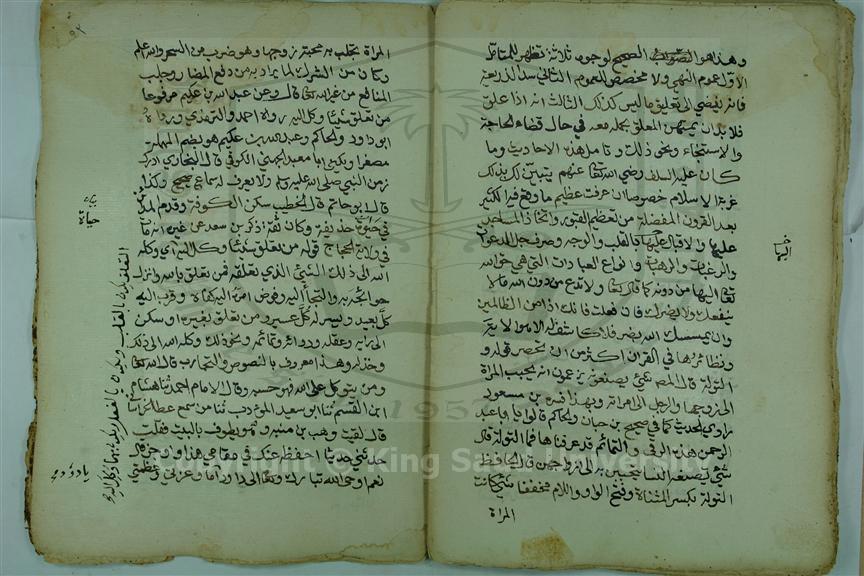 وهذا هو الصحيح لوجوه ثلاثة تظهر للمتأمل
الأول عموم النهي ولا مخصص للعموم الثاني سد الذريعة
فانه يفضي الى تعليق ما ليس كذلك الثالث انه اذا علق
فلا بد ان يمتهن المعلق بحمله معه في حال قضاء الحاجة
والاستنجاء ونحو ذلك وتامل هذه الاحاديث وما
كان عليه السلف رضي الله تعالى عنهم يتبين لك بذلك
غربة الاسلام خصوصا ان عرفت عظيم ما وقع فيه الكثير
بعد القرون المفضلة من تعظيم القبور واتخاذ المساجد
عليها والاقبال عليها بالقلب والوجه وصرف جل الدعوات
والرغبات والرهبات وانواع العبادات التي هي حق الله
تعالى اليها من دونه كما قال تعالى ولا تدع من دون الله ما لا
ينفعك ولا يضرك فان فعلت فانك اذا من الظالمين
وان يمسسك الله بضر فلا كاشف له الا هو الاية
ونظائرها في القران اكثر من ان تحصر قوله و
التولة قال المص شيء يصنعونه يزعمون انه يحبب المرأة
الى زوجها والرجل الى امراته وبهذا فسره بن مسعود
راوي الحديث كما في صحيح بن حبان والحاكم قالوا يابا عبد
الرحمن هذه الرقى والتمائم قد عرفناها فما التولة قال
شئ يصنعه النساء يتحببن به الى ازواجهن قال الحافظ
التولة بكسر المثناة وفتح الواو واللام مخففا شئ كانت
المراة
المراة تجلب به محبة زوجها وهو ضرب من السحر والله اعلم
وكان من الشرك لما يراد به من دفع المضار وجلب
المنافع من غير الله تعالى قال وعن عبد الله بن عكيم مرفوعا
من تعلق شيئا وكل اليه رواه احمد والترمذي ورواه
ابو داود والحاكم وعبد الله بن عكيم هو بضم المهملة
مصغرا ويكنى ابا معبد الجهني الكوفي قال البخاري ادرك
زمن النبي صلى الله عليه وسلم ولا يعرف له سماع صحيح وكذا
قال ابو حاتم قال الخطيب سكن الكوفة وقدم المدائن
في حيوة حذيفة وكان ثقة وذكر بن سعد عن غيره انه مات
في ولاية الحجاج قوله من تعلق شيئا وكل اليه اي وكله
الله الى ذلك الشئ الذي تعلقه فمن تعلق بالله وانزل
حوائجه به والتجأ اليه وفوض امره اليه كفاه وقرب اليه
كل بعيد ويسر له كل عسير ومن تعلق بغيره او سكن
الى رايه وعقله ودوائه وتمائمه ونحو ذلك وكله الله الى ذلك
وخذله وهذا معروف بالنصوص والتجارب قال الله تعالى
ومن يتوكل على الله فهو حسبه وقال الامام احمد ثنا هشام
ابن القسم ثنا ابو سعيد المؤدب ثنا من سمع عطا الخراساني
قال لقيت وهب بن منبه وهو يطوف بالبيت فقلت
حدثني حديثا احفظه عنك في مقامي هذا واوجز قال
نعم اوحى الله تبارك وتعالى الى داود اما وعزتي وعظمتي
حياة
التعلق يكون بالقلب ويكون بالفعل ويكون بهما
يا داود
Copyright © King Saud University
1957